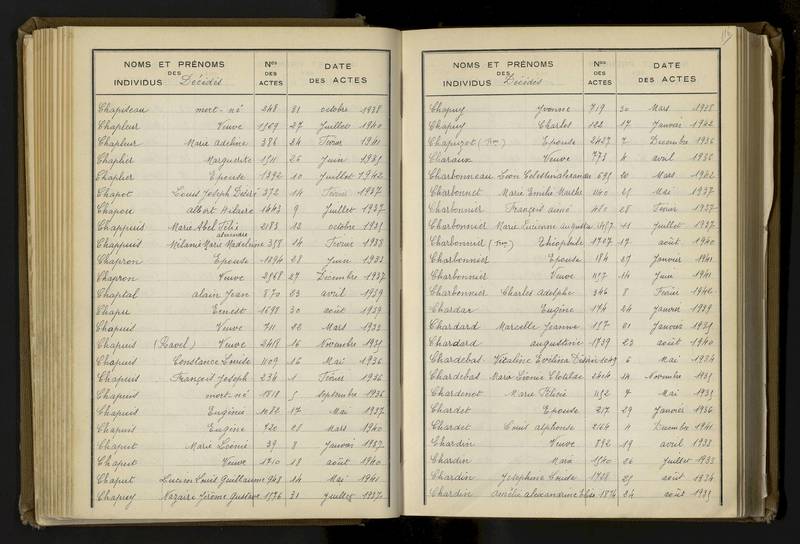 NOMS ET PRÉNOMS DES INDIVIDUS Décédés Nos DES ACTES DATE DES ACTES
Chapiteau mort-né 248 31 octobre 1938
Chapleur Veuve 1569 27 Juillet 1940
Chapleur Marie Adeline 376 24 Février 1941
Chaplier Marguerite 1511 26 Juin 1935
Chaplier Epouse 1392 10 Juillet 1942
Chapot Louis Joseph Désiré 372 14 Février 1937
Chapou albert Hilaire 1443 9 Juillet 1937
Chappuis Marie Abel Félix alexandre 2183 12 octobre 1935
Chappuis Mélanie Marie Madeleine 357 14 Février 1938
Chapron Epouse 1294 28 Juin 1933
Chapron Veuve 2568 27 Décembre 1937
Chaptal alain Jean 870 23 avril 1939
Chapu Ernest 1698 30 août 1939
Chapuis Veuve 711 22 Mars 1933
Chapuis (Ravel) Veuve 2418 16 Novembre 1935
Chapuis Constance Louise 1109 16 Mai 1936
Chapuis François Joseph 234 1 Février 1936
Chapuis mort-né 1818 5 Septembre 1936
Chapuis Eugénie 1082 17 Mai 1937
Chapuis Eugène 720 28 Mars 1940
Chaput Marie Noémie 39 8 Janvier 1937
Chaput Veuve 1710 18 août 1940
Chaput Lucien Louis Guillaume 948 14 Mai 1941
Chapuy Nazaire Jérôme Gustave 1576 31 Juillet 1937
NOMS ET PRÉNOMS DES INDIVIDUS Décédés Nos DES ACTES DATE DES ACTES
Chapuy Yvonne 719 30 Mars 1938
Chapuy Charles 122 17 Janvier 1942
Chapuzot 2427 7 Décembre 1936
Charaux Veuve 773 4 avril 1936
Charbonneau Léon Célestin alexandre 695 20 Mars 1942
Charbonnet Marie Emilie Marthe 1140 25 Mai 1937
Charbonnier François aimé 480 28 Février 1937
Charbonnier Marie Lucienne augusta 1457 11 Juillet 1937
Charbonnier Théophile 1707 17 août 1940
Charbonnier Epouse 184 27 Janvier 1941
Charbonnier Veuve 1157 14 Juin 1941
Charbonnier Charles Adolphe 346 8 Février 1942
Chardac Eugène 174 24 Janvier 1939
Chardard Marcelle Jeanne 157 21 Janvier 1935
Chardard augustine 1739 23 août 1940
Chardebas Vitaline Evelina Désirée 1049 6 Mai 1934
Chardebas Marie Léonie Clotilde 2404 14 Novembre 1935
Chardenot Marie Félicie 1152 7 Mai 1935
Chardet Epouse 217 29 Janvier 1936
Chardet Louis alphonse 2164 11 Décembre 1941
Chardin Veuve 892 19 avril 1933
Chardin Marie 1540 26 Juillet 1933
Chardin Joséphine Louise 1708 25 août 1934
Chardin Amélie alexandrine Elise 1874 24 août 1935